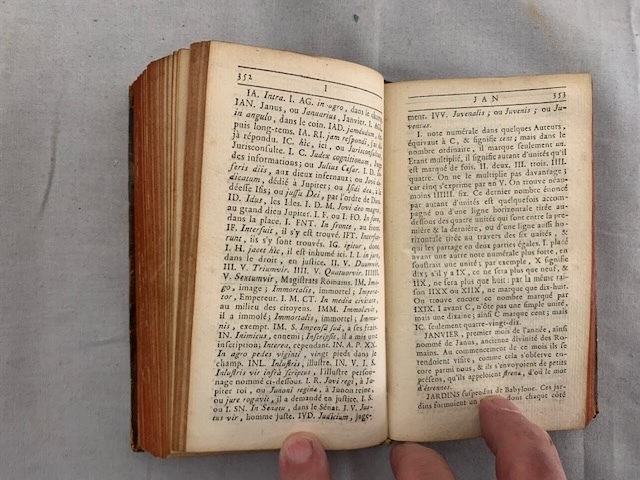 352
I
IA. Intra. I. AG. in agro, dans le champ.
IAN. Janus, ou Januarius, Janvier. I. AN.
in angulo, dans le coin. IAD. jamdudum, de-
puis long-tems. IA. RI. jam respondi, j'ai dé-
jà répondu. IC. hic, ici, ou Jurisconsultus,
Jurisconsulte. I. C. Judex cognitionum, Juge
des informations; ou Julius Cesar. I. D. In-
feris diis, aux dieux infernaux; ou Jovi de-
dicatum, dédié à Jupiter; ou Isidi dea, à la
déesse Isis; ou jussu Dei, par l'ordre de Dieu.
ID. Idus, les Ides. I. D. M. Jovi deo magno,
au grand dieu Jupiter. I. F. ou I. FO. In foro,
dans la place. I. FNT. In fronte, au front.
IF. Interfuit, il s'y est trouvé. IFT. Interfue-
runt, ils s'y sont trouvés. IG. igitur, donc.
I. H. jacet hic, il est inhumé ici. I. I. in jure,
dans le droit, en justice. II. V. Duumvir.
III. V. Triumvir. IIII. V. Quatuorvir. IIIIII.
V. Sextumvir, Magistrats Romains. IM. Ima-
go, image; Immortalis, immortel; Impera-
tor, Empereur. I. M. CT. In media civitate,
au milieu des citoyens. IMM. Immolavit,
il a immolé; Immortalis, immortel; Immu-
nis, exempt. IM. S. Impensâ suâ, à ses frais.
IN. Inimicus, ennemi; Inscripsit, il a mis une
inscription; Interea, cependant. IN. A. P. XX.
In agro pedes viginti, vingt pieds dans le
champ. INL. Inlustris, illustre. IN. V. I. S.
Inlustris vir infrà scriptus, l'illustre person-
nage nommé ci-dessous. I. R. Jovi regi, à Ju-
piter roi, ou Junoni regina, à Junon reine,
ou jure rogavit, il a demandé en justice. I. S.
ou I. SN. In Senatu, dans le Sénat. I. V. Jus-
tus vir, homme juste. IVD. Judicium, juge-
JAN
353
ment. IVV. Juvenalis; ou Juvenis; ou Ju-
ventus.
I. note numérale dans quelques Auteurs,
équivaut à C, & signifie cent; mais dans le
nombre ordinaire, il marque seulement un.
Etant multiplié, il signifie autant d'unités qu'il
est marqué de fois. II. deux. III. trois. IIII.
quatre. On ne le multiplie pas davantage;
car cinq s'exprime par en V. On trouve néan-
moins IIIIII. six. Ce dernier nombre énoncé
par autant d'unités est quelquefois accom-
pagné ou d'une ligne horizontale tirée au-
dessous des quatre unités qui sont entre la pre-
miere & la derniere, ou d'une ligne aussi ho-
rizontale tirée au travers des six unités, &
qui les partage en deux parties égales. I. placé
avant une autre note numérale plus forte, en
soustrait une unité; par exemple, X signifie
dix; s'il y a IX, ce ne sera plus que neuf, &
IIX, ne sera plus que huit: par la même rai-
son IIXX ou XIIX, ne marque que dix-huit.
On trouve encore ce nombre marqué par
IXIX. I avant C, n'ôte pas une simple unité,
mais une dixaine; ainsi C marque cent; mais
IC. seulement quatre-vingt-dix.
JANVIER, premier mois de l'année, ainsi
nommé de Janus, ancienne divinité des Ro-
mains. Au commencement de ce mois ils se
rendoient visite, comme cela s'observe en-
core parmi nous, & ils s'envoyoient de petits
présens, qu'ils appeloient strena, d'où le mot
d'étrennes.
JARDINS suspendus de Babylone. Ces jar-
dins formoient un dont chaque côté